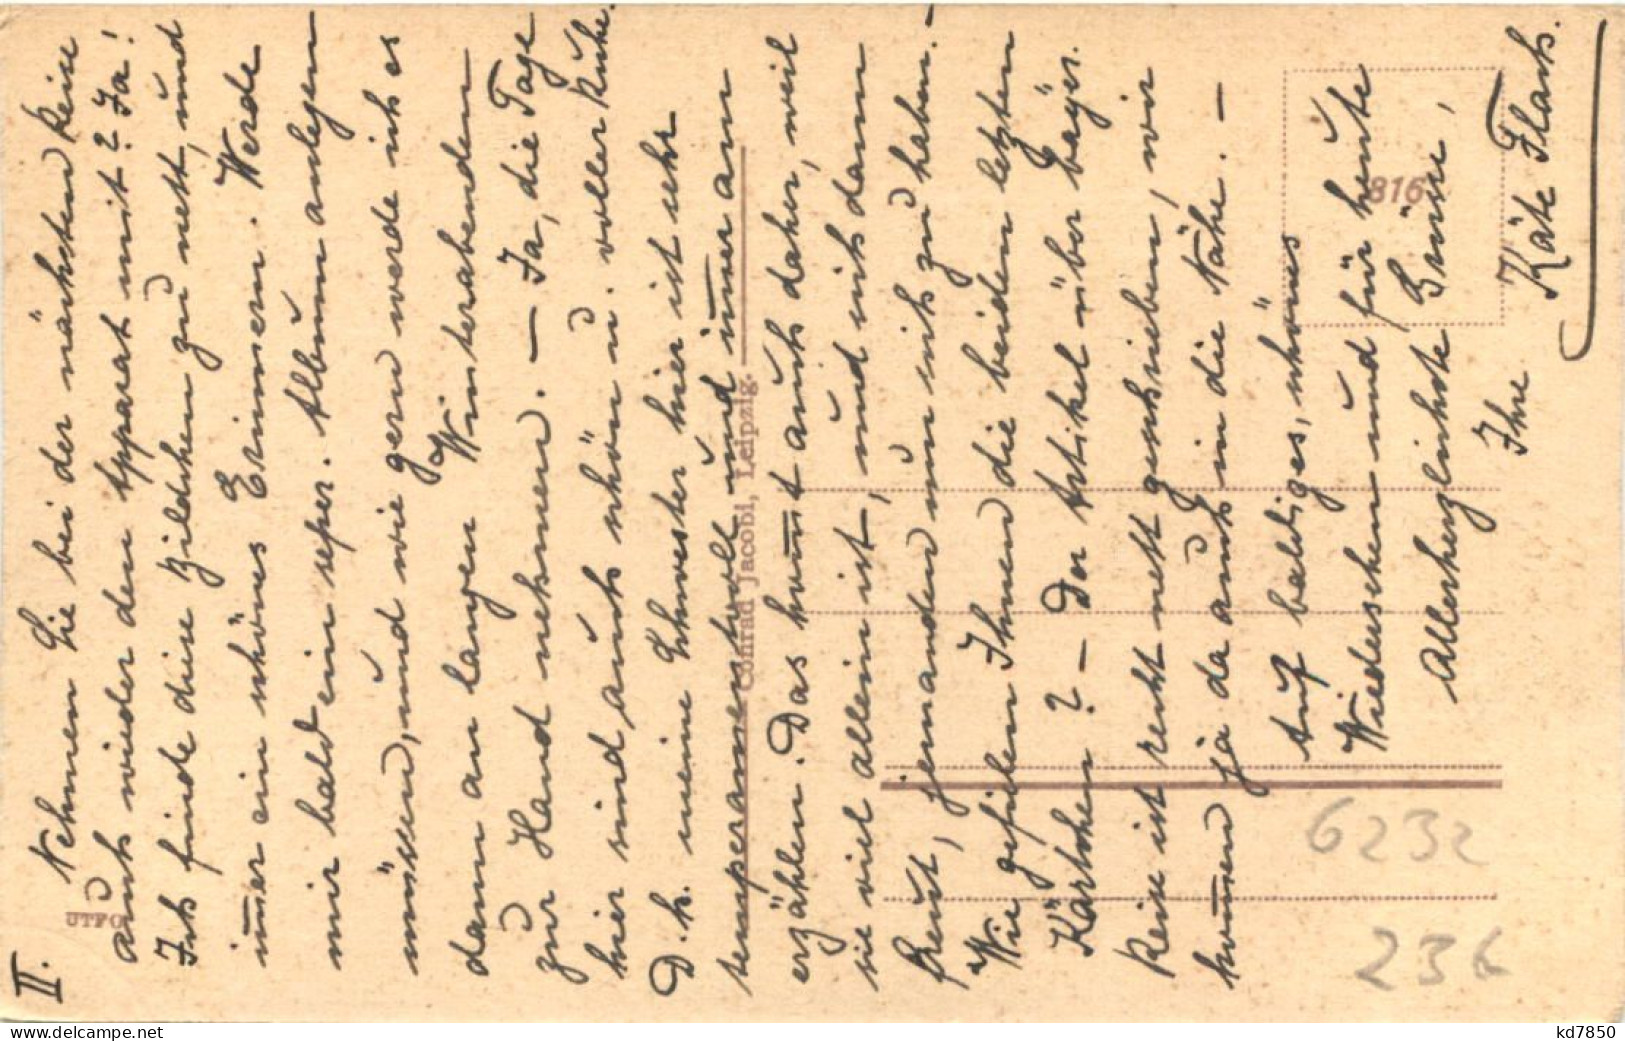 II.
Nehmen Sie bei der nächsten Reise
auch wieder den Apparat mit?? Ja!
Ich finde diese Bildchen zu nett, und
immer ein schönes Erinnern. Werde
mir bald ein seper. Album anlegen
müssen, und wie gern werde ich es
dann an langen Winterabenden
zur Hand nehmen. – Ja, die Tage
hier sind auch schön u. voller Ruhe.
D. h. meine Schwester hier ist sehr
temperamentvoll und immer am
erzählen. Das kommt auch daher, weil
sie viel allein ist, und sich dann
freut, jemanden um sich zu haben. –
Wie gefielen Ihnen die beiden letzten
Kärtchen? – Der Artikel über bayer.
Reise ist recht nett geschrieben, wir
kommen ja da auch in die Nähe. –
Auf baldiges, schönes
Wiedersehen und für heute
allerherzlichste Grüsse,
Ihre
Käte Flach.
UTFO
Conrad Jacobi, Leipzig.
816
6232
236
www.delcampe.net
kd7850